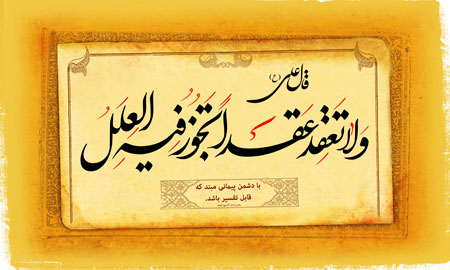 قال علی (ع)
وَلا تَعقِد عَقداً تَجُوزُ فیهِ العِلَلُ
با دشمن پیمانی مبند که
قابل تفسیر باشد.